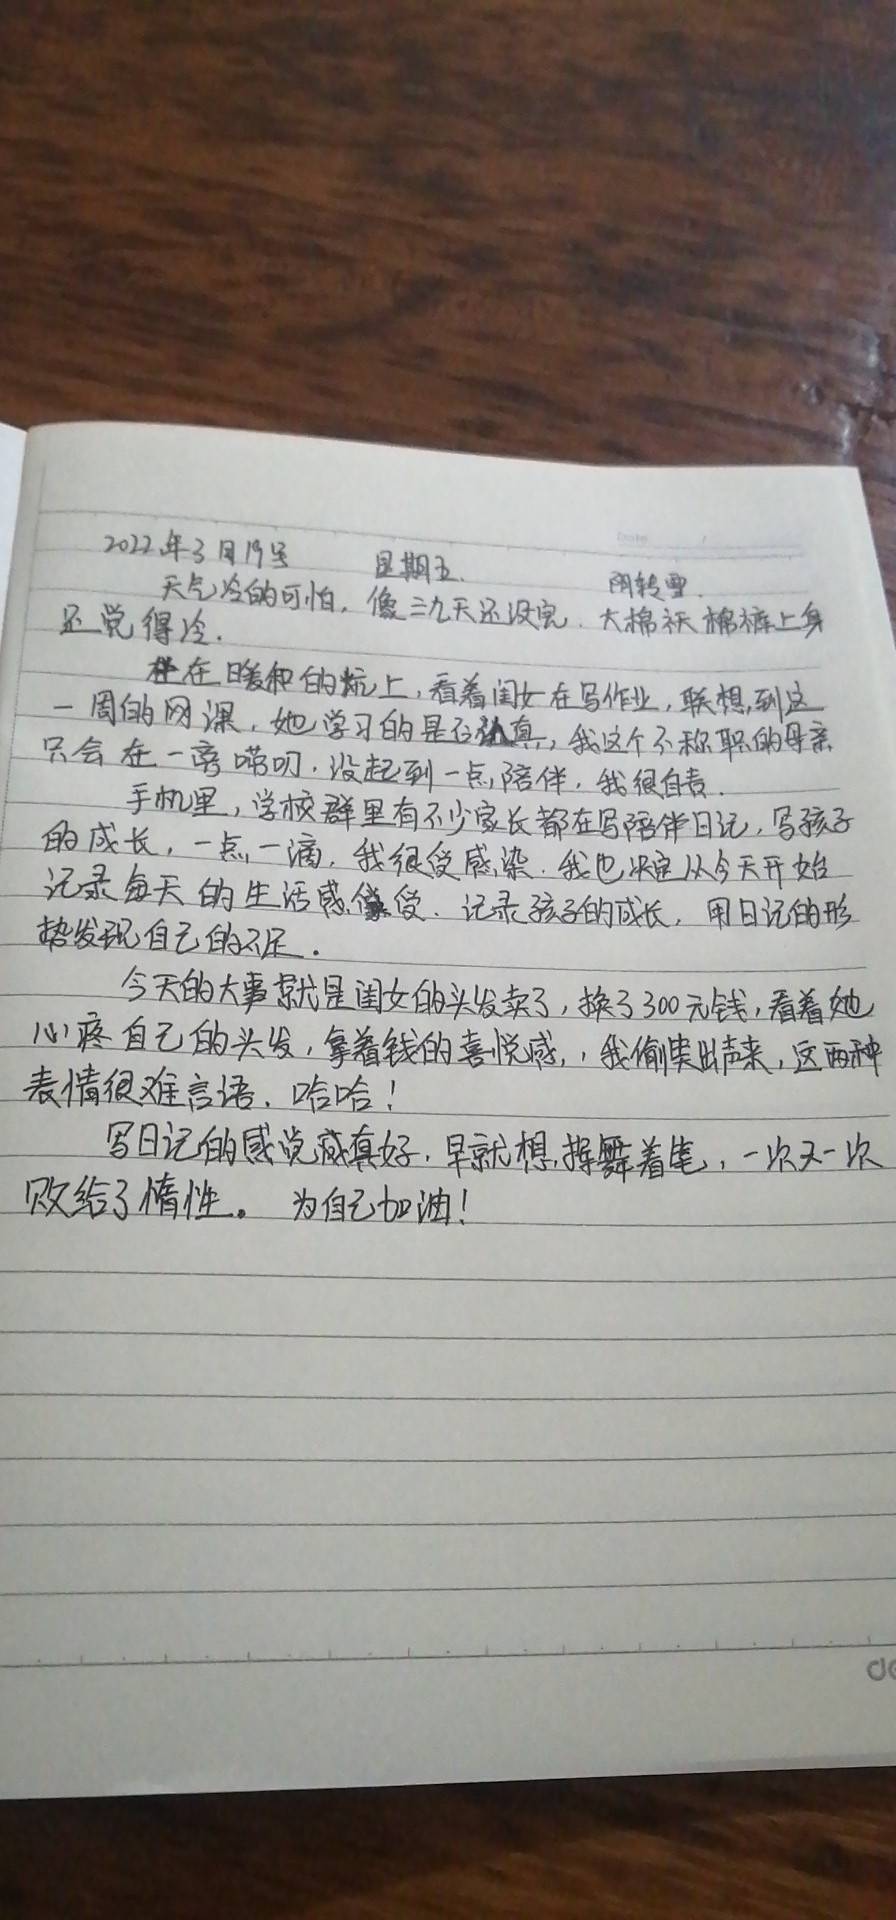 2022年3月19号 星期五. 阴转雪.
天气冷的可怕，像三九天还没完．大棉袄棉裤上身
还觉得冷．
在暖和的炕上，看着闺女在写作业，联想到这
一周的网课，她学习的是否认真，我这个不称职的母亲
只会在一旁唠叨．没起到一点陪伴，我很自责．
手机里，学校群里有不少家长都在写陪伴日记，写孩子
的成长，一点一滴，我很受感染．我也决定从今天开始
记录每天的生活感受．记录孩子的成长，用日记的形
势发现自己的不足．
今天的大事就是闺女的头发卖了，换了300元钱，看着她
心疼自己的头发，拿着钱的喜悦感，，我偷笑出声来，这两种
表情很难言语．哈哈！
写日记的感觉真好．早就想挥舞着笔，一次又一次
败给了惰性。为自己加油！
de